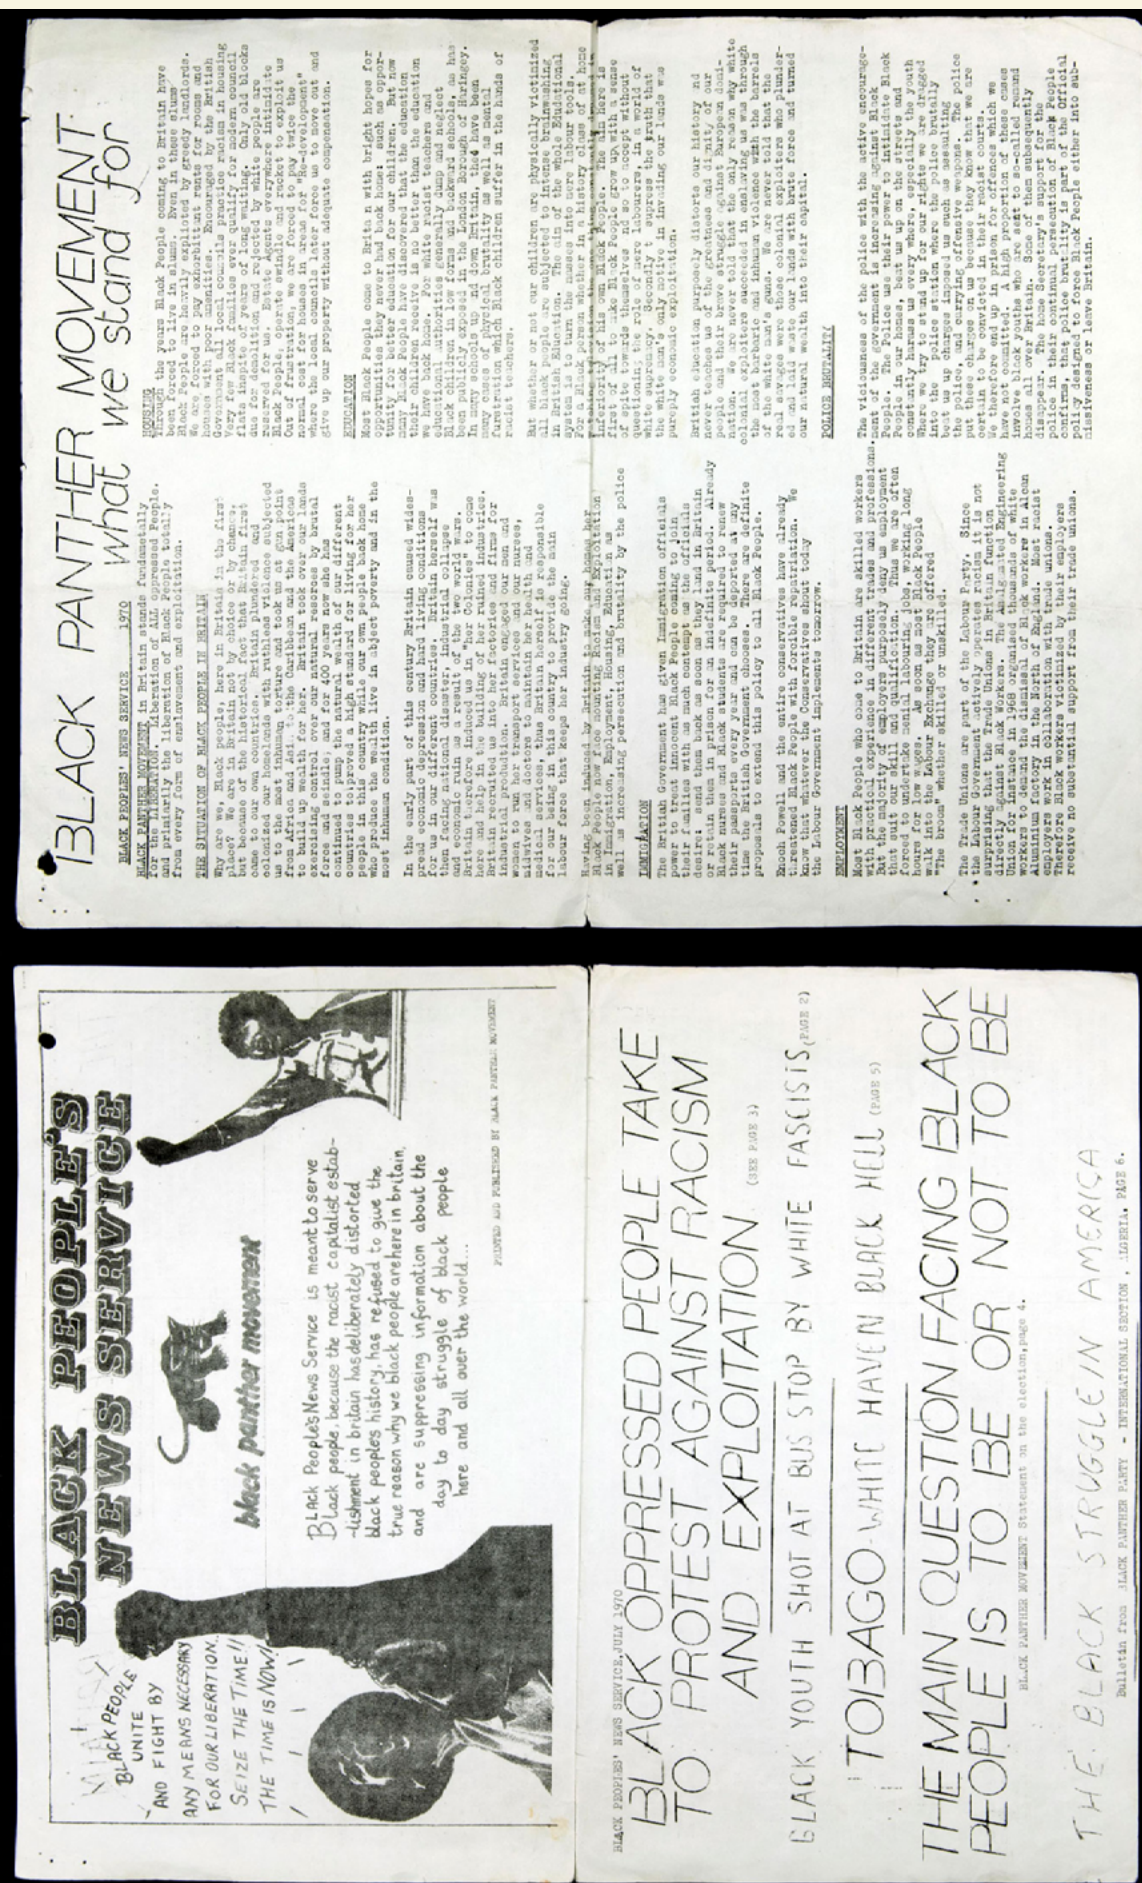 BLACK PEOPLE'S
NEWS SERVICE
BLACK PEOPLE
UNITE
AND FIGHT BY
ANY MEANS NECESSARY
FOR OUR LIBERATION.
SEIZE THE TIME!!
THE TIME IS NOW!
black panther movement
BLAck People's News Service is meant to serve
Black people, because the racist capitalist estab-
-lishment in britain has deliberately distorted
black people's history, has refused to give the
true reason why we black people are here in britain,
and are suppressing information about the
day to day struggle of black people
here and all over the world...
PRINTED AND PUBLISHED BY BLACK PANTHER MOVEMENT
BLACK PEOPLES' NEWS SERVICE, JULY 1970
BLACK OPPRESSED PEOPLE TAKE
TO PROTEST AGAINST RACISM
AND EXPLOITATION (SEE PAGE 3)
BLACK YOUTH SHOT AT BUS STOP BY WHITE FASCISTS (PAGE 2)
TOBAGO-WHITE HAVEN BLACK HELL (PAGE 5)
THE MAIN QUESTION FACING BLACK
PEOPLE IS TO BE OR NOT TO BE
BLACK PANTHER MOVEMENT Statement on the election, page 4.
THE BLACK STRUGGLE IN AMERICA
Bulletin from BLACK PANTHER PARTY - INTERNATIONAL SECTION, ALGERIA, PAGE 6.
BLACK PANTHER MOVEMENT
What we stand for
BLACK PEOPLES' NEWS SERVICE 1970
BLACK PANTHER MOVEMENT in Britain stands fundametally
for LIBERATION. Liberation of ALL oppressed People.
and primarily the liberation Black People totally
from every form of enslavement and exploitation.
THE SITUATION OF BLACK PEOPLE IN BRITAIN
Why are we, Black people, here in Britain in the first
place? We are in Britain not by choice or by chance,
but because of the historical fact that Britain first
came to our own countries. Britain plundered and
colonised our homelands with ruthless violence subjected
us to the most inhuman torture and took us at gun point
from Africa and Asia to the Caribbean and the Americas
to build up wealth for her. Britain took over our lands
exercising control over our natural resorces by brutal
force and seizdie; and for 400 years now she has
continued to pump the natural wealth of our different
countries and has improved high standard of living for her
people in this country while our own people back home
who produce the wealth live in abject poverty and in the
most inhuman condition.
In the early part of this century Britain caused wides-
pread economic depression and hard living conditions
for us in our different countries. Britain herself was
then facing national disaster, industrial collapse
and economic ruin as a result of the two world wars.
Britain therefore induced us in "her Colonies" to come
here and help in the building of her ruined industries.
Britain recruited us into her factories and firms for
industrial production. Britain engaged our men and
women to run her transport services and our nurses,
midwives and doctors to maintain her health and
medical services, thus Britain herself is responsible
for our being in this country to provide the main
labour force that keeps her industry going.
Having been induced by Britain to make our homes her
Black People now face mounting Racism and Exploitation
in Immigration, Employment, Housing, Education as
well as increasing persecution and brutality by the police
IMMIGRATION
The British Government has given Immigration officials
power to treat innocent Black People coming to join
their families with as much contempt as the officials
desire: send them back as soon as they land in Britain
or retain them in prison for an indefinite period. Already
Black nurses and Black students are required to renew
their passports every year and can be deported at any
time the British Government chooses. There are definite
proposals to extend this policy to all Black People.
Enoch Powell and the entire conservatives have already
threatened Black People with forcible repatriation. We
know that whatever the Conservatives shout today
the Labour Government implements tomorrow.
EMPLOYMENT
Most Black People who come to Britain are skilled workers
with practical experience in different trades and professions.
But the majority of employers purposely deny us employment
that suit our skill and qualification. Thus we are often
forced to undertake menial labouring jobs, working long
hours for low wages. As soon as most Black People
walk into the Labour Exchange they are offered
"The broom" whether skilled or unskilled.
The Trade Unions are part of the Labour Party. Since
the Labour Government actively operates racism it is not
surprising that the Trade Unions in Britain function
directly against Black Workers. The Amalgamated Engineering
Union for instance in 1968 organised thousands of white
workers to demand the dismissal of Black workers in Alcan
Aluminium factory in the North of England. Many racist
employers work in collaboration with trade unions.
Therefore Black workers victimized by their employers
receive no substantial support from their trade unions.
HOUSING
Through the years Black People coming to Britain have
been forced to live in slums. Even in these slums
Black People are heavily exploited by greedy landlords.
We are forced to pay exorbitant rents for rooms and
houses with poor amenities. Encouraged by the British
Government all local councils practice racism in housing
Very few Black families ever qualify for modern council
flats inspite of years of long waiting. Only old blocks
due for demolition and rejected by white people are
reserved for us. Estate Agents everywhere intimidate
Black People, operate swindle and racket to exploit us
Out of frustration, we are forced to pay twice the
normal cost for houses in areas for "Re-development"
where the local councils later force us to move out and
give up our property without adequate compensation.
EDUCATION
Most Black People come to Britain with bright hopes for
opportunities they never had back home such as oppor-
tunity for better education for our children. But now
many Black People have discovered that the education
their children receive is no better than the education
we have back home. For white racist teachers and
educational authorities generally dump and neglect
Black children in low forms and backward schools. as has
been publicly exposed in the London Borough of Haringey.
In many schools up and down Britain, there have been
many cases of physical brutality as well as mental
furstration which Black children suffer in the hands of
racist teachers.
But whether or not our children are physically victimized
all black people are subjected to intense brainwashing
in British Education. The aim of the whole Educational
system is to turn the masses into mere labour tools.
For a Black person whether in a history class of at home
inferiority of his own Black People. The aim here is
first of all to make Black People grow up with a sense
of spite towards themselves and so to accept without
questioning, the role of mere labourers, in a world of
white supremacy. Secondly to supress the truth that
the white man's only motive in invading our lands was
purely economic exploitation.
British education purposely distorts our history and
never teaches us of the greatness and dignity of our
people and their brave struggle against European domi-
nation. We are never told that the only reason why white
colonial exploiters succeeded in enslaving us was through
the most barbaric and inhuman violence with the barrels
of the white man's guns. We are never told that the
real savages were those colonial exploiters who plunder-
ed and laid waste our lands with brute force and turned
our natural wealth into their capital.
POLICE BRUTALITY
The viciousness of the police with the active encourage-
ment of the government is increasing against Black
People. The Police use their power to intimidate Black
People in our homes, beat us up on the streets and
constantly harass us every where, especially the youth
Where we try to stand up for our rights we are dragged
into the police station where the police brutally
beat us up charges imposed us such as assaulting
the police, and carrying offensive weapons. The police
put these charges on us because they know that we are
certain to be convicted in their racist courts.
We are therefore ending up in prison for offences which we
have not committed. A high proportion of these cases
involve black youths who are sent to so-called remand
homes all over Britain. Some of them subsequently
disappear. The home Secretary's support for the
police in their continual persecution of Black People
confirms, that police brutality is part of the Official
policy designed to force Black People either into sub-
missiveness or leave Britain.